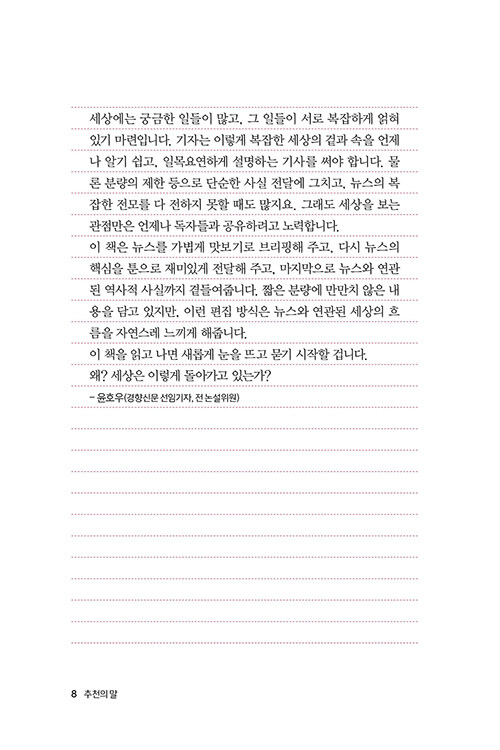 세상에는 궁금한 일들이 많고, 그 일들이 서로 복잡하게 얽혀
있기 마련입니다. 기자는 이렇게 복잡한 세상의 겉과 속을 언제
나 알기 쉽고, 일목요연하게 설명하는 기사를 써야 합니다. 물
론 분량의 제한 등으로 단순한 사실 전달에 그치고, 뉴스의 복
잡한 전모를 다 전하지 못할 때도 많지요. 그래도 세상을 보는
관점만은 언제나 독자들과 공유하려고 노력합니다.
이 책은 뉴스를 가볍게 맛보기로 브리핑해 주고, 다시 뉴스의
핵심을 툰으로 재미있게 전달해 주고, 마지막으로 뉴스와 연관
된 역사적 사실까지 곁들여줍니다. 짧은 분량에 만만치 않은 내
용을 담고 있지만, 이런 편집 방식은 뉴스와 연관된 세상의 흐
름을 자연스레 느끼게 해줍니다.
이 책을 읽고 나면 새롭게 눈을 뜨고 묻기 시작할 겁니다.
왜? 세상은 이렇게 돌아가고 있는가?
– 윤호우(경향신문 선임기자, 전 논설위원)
8 추천의 말